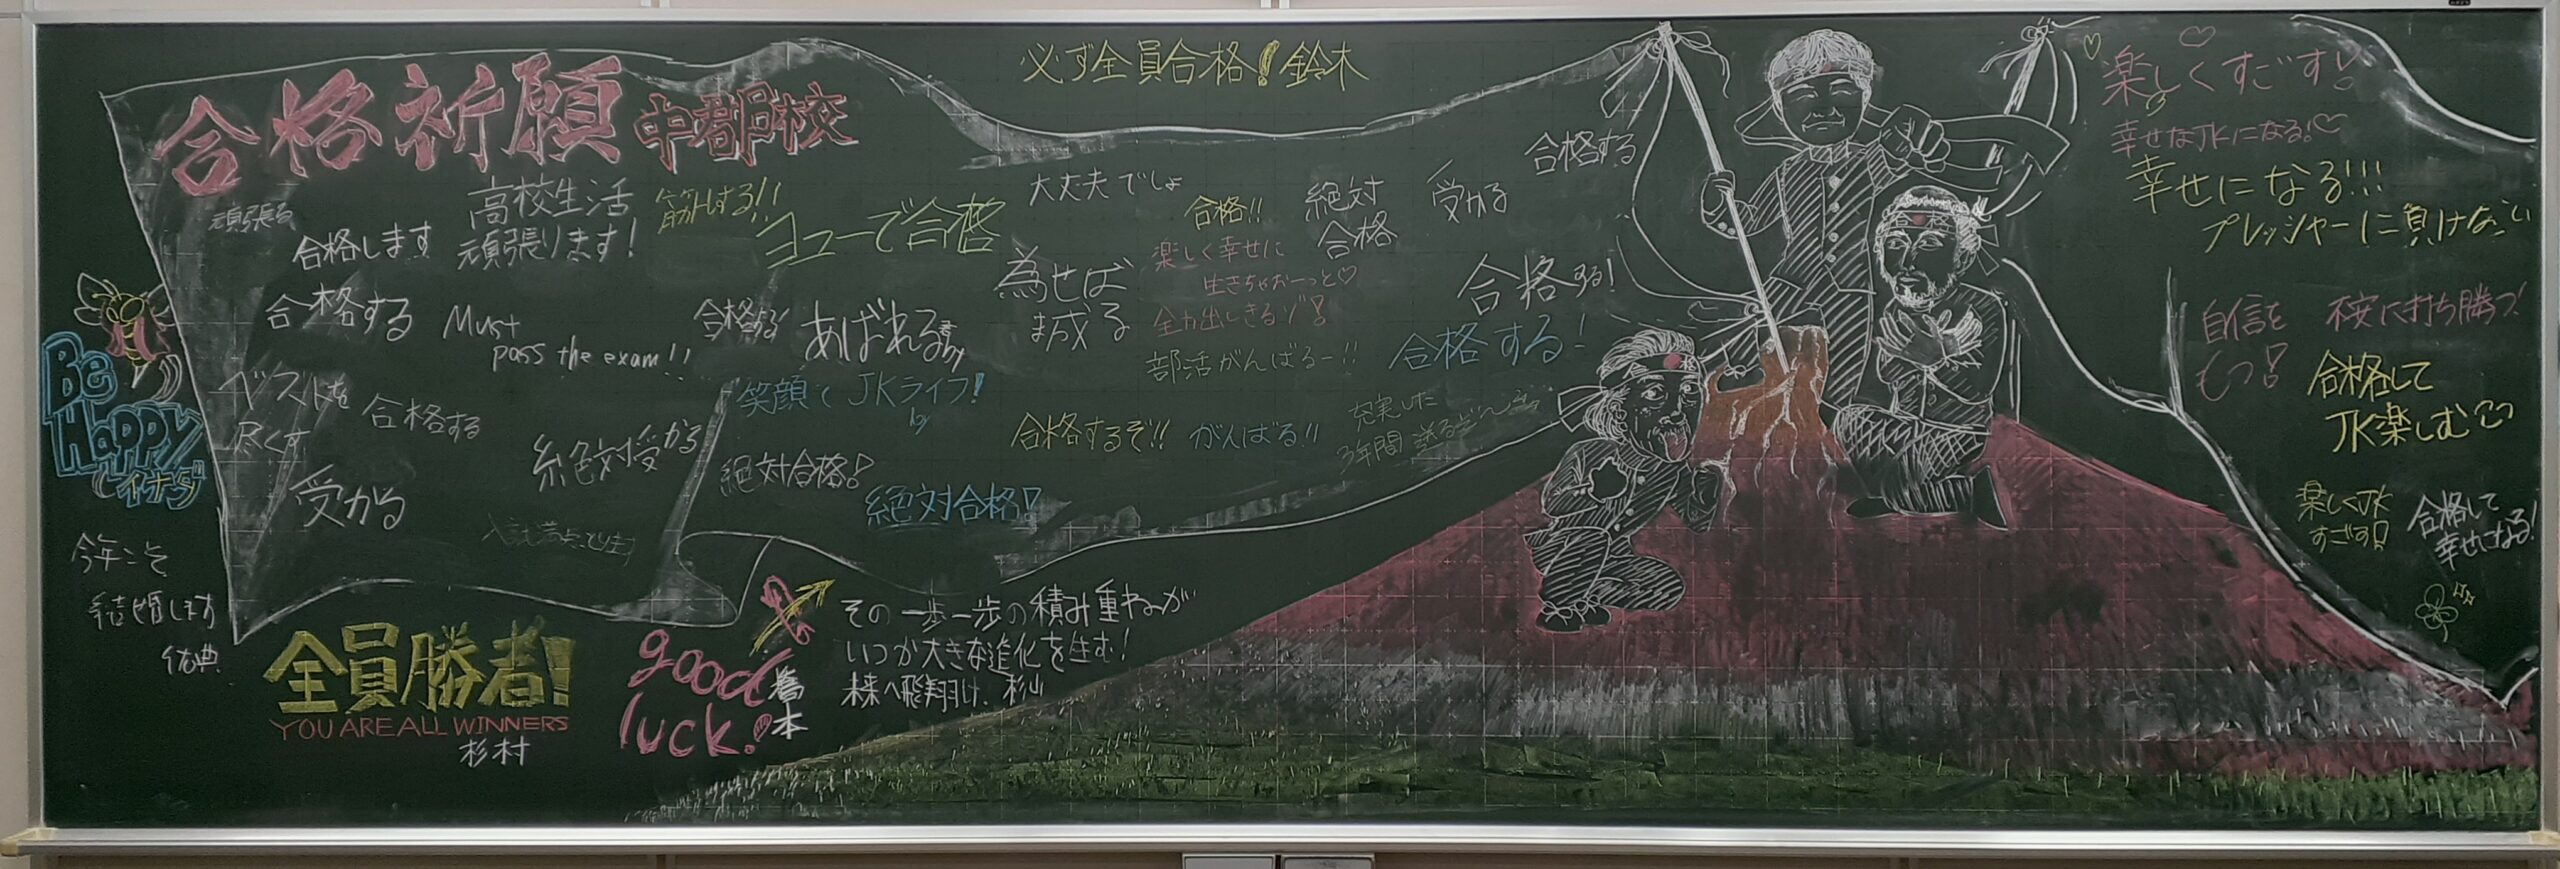 必ず全員合格!鈴木
合格祈願 中郡校
頑張る
高校生活
頑張ります!
筋トレする!!
ヨユーで合格
合格します
合格する
Must
pass the exam!!
ベストを
尽くす
合格する
受かる
絶対受かる
あばれる君 by
笑顔で JKライフ!
by
絶対合格!
絶対合格!
大丈夫でしょ
為せば
成る
合格!!
楽しく幸せに
生きちゃおーっと♡
全力出しきるゾ!
部活がんばるー!!
絶対
合格
受かる
合格する
合格する!
合格する!
合格するぞ!!
がんばる!!
充実した
3年間送るぞ〜
楽しくすごす!
幸せなJKになる!♡
幸せになる!!!
プレッシャーに負けない
自信を
もつ!
不安に打ち勝つ!
合格して
JK楽しむ
楽しくJK
すごす!
合格して
幸せになる!
Be
Happy
イナダ
今年こそ
結婚します
全員勝者!
YOU ARE ALL WINNERS
杉村
good
luck!
その一歩一歩の積み重ねが
いつか大きな進化を生む!
未来へ飛翔け、杉山